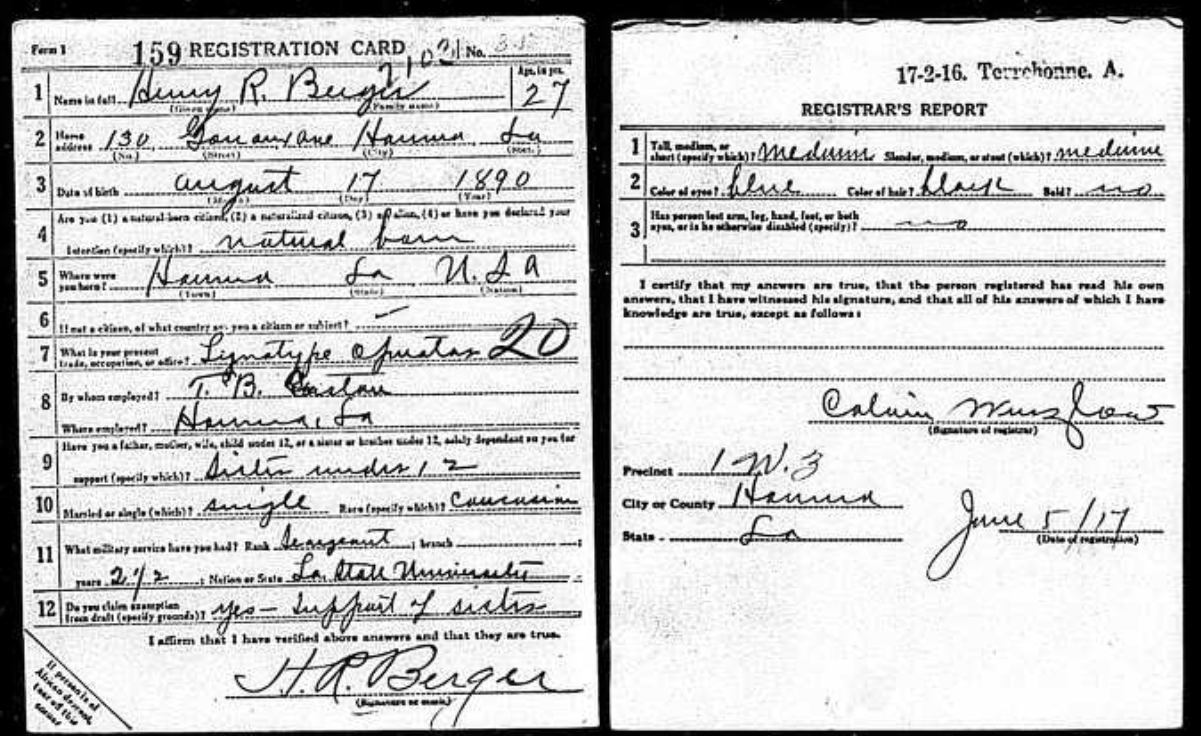 Form 1 159 REGISTRATION CARD 2103 No. 31
1 Name in full Henry R. Berger Age, in yrs. 27
(Given name) (Family name)
2 Home address 130 Houma La
(No.) (Street) (City) (State)
3 Date of birth August 17 1890
(Month) (Day) (Year)
4 Are you (1) a natural-born citizen, (2) a naturalized citizen, (3) an alien, (4) or have you declared your
intention (specify which)? natural born
5 Where were you born? Houma La U.S.A
(Town) (State) (Nation)
6 If not a citizen, of what country are you a citizen or subject? —
7 What is your present trade, occupation, or office? Lynotype Operator 20
8 By whom employed? T. B. Easton
Where employed? Houma, La
9 Have you a father, mother, wife, child under 12, or a sister or brother under 12, solely dependent on you for
support (specify which)? Sister under 12
10 Married or single (which)? single Race (specify which)? Caucasian
11 What military service have you had? Rank Seargeant ; branch ;
years 2 1/2 ; Nation or State La State University
12 Do you claim exemption from draft (specify grounds)? yes - Support of sister
I affirm that I have verified above answers and that they are true.
H. R. Berger
(Signature or mark)
If person is of
African descent,
tear off this
corner
17-2-16. Terrebonne. A.
REGISTRAR'S REPORT
1 Tall, medium, or short (specify which)? Medium Slender, medium, or stout (which)? medium
2 Color of eyes? blue Color of hair? black Bald? no
3 Has person lost arm, leg, hand, foot, or both eyes, or is he otherwise disabled (specify)? no
I certify that my answers are true, that the person registered has read his own
answers, that I have witnessed his signature, and that all of his answers of which I have
knowledge are true, except as follows:
Calvin Wurzlow
(Signature of registrar)
Precinct 1 W. 3
City or County Houma
State La
June 5/17
(Date of registration)